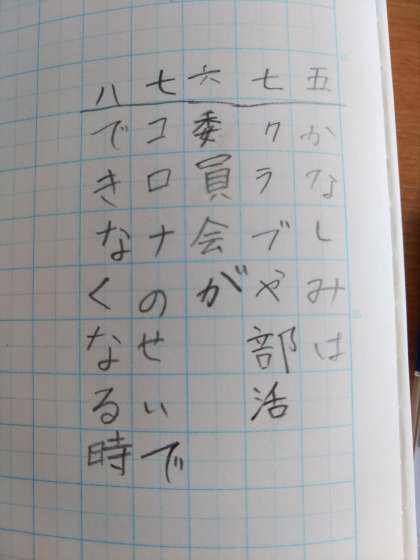 五 かなしみは
七 クラブや部活
六 委員会が
七 コロナのせいで
八 できなくなる時